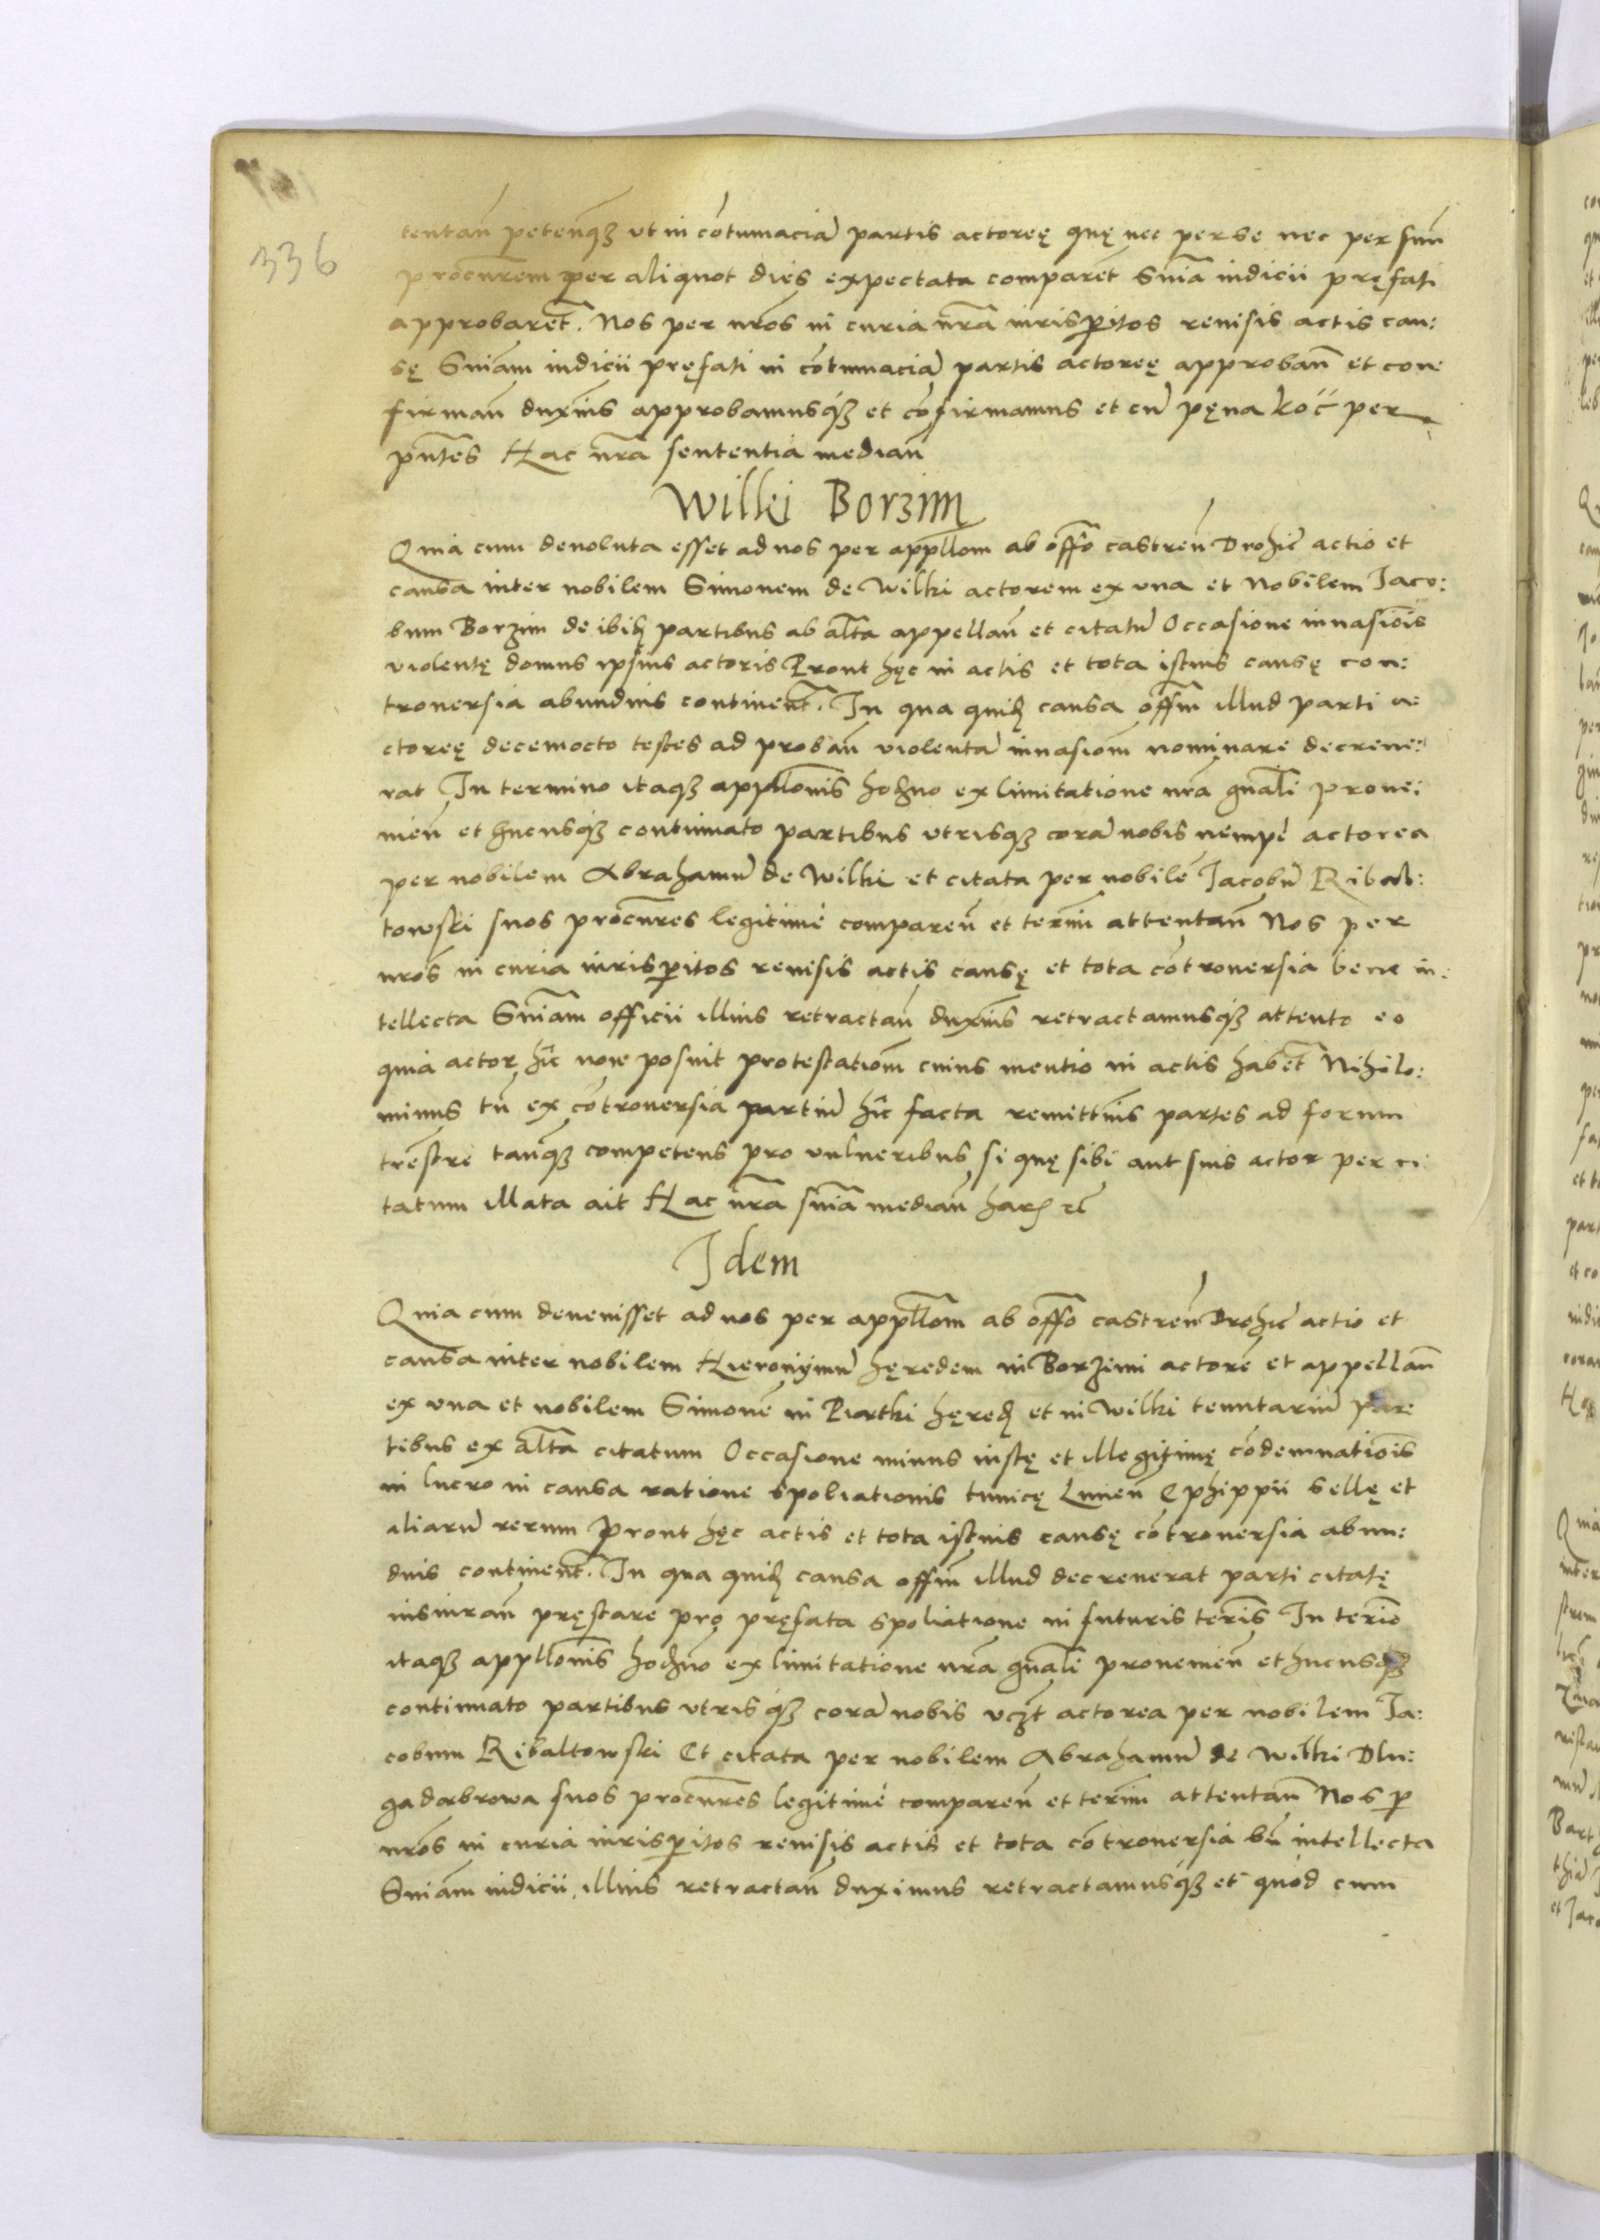 336
tentan̄ petenq̄ȝ ut in cōtumaciā partis actoreę quę nec per se nec per suū
procurēm per aliquot dies expectata comparet̄ Sniā iudicii pręfati
approbaret̄. Nos per nrōs in curia nrā iurisperitos revisis actis cau:
sę Sniām iudicii pręfati in cōtumaciā partis actoreę approban̄ et con:
firman̄ duxim̄s approbamusq́ȝ et cōfirmamus et cū pęna koc̄ per
pn̄tes Hac nrā sententia median̄
Wilki Borzim
Quia cum devoluta esset ad nos per appllōm ab offō castren̄ Drohic̄ actio et
causa inter nobilem Simonem de Wilki actorem ex una et Nobilem Jaco:
bum Borzim de ibid partibus ab altā appellan̄ et citatū Occasione invasiōis
violentę domus ipsius actoris Prout hęc in actis et tota istius causę con:
troversia abundius continent̄. In qua quid causa offm̄ illud parti a:
ctoreę decemocto testes ad proban̄ violentā invasiom̄ nominare decreve:
rat In termino itaqȝ appllōnis hodno ex limitatione nrā gnāli prove:
nien̄ et hucusqȝ continuato partibus utrisqȝ corā nobis nempè actorea
per nobilem Abrahamū de Wilki et citata per nobilē Jacobū Ribal:
towski suos procurēs legitimè comparen̄ et term̄i attentan̄ Nos per
nrōs in curia iurisperitos revisis actis causę et tota cōtroversia bene in:
tellecta Sniām officii illius retractan̄ duxim̄s retractamusq́ȝ attento eo
quia actor hîc non posuit protestatiom̄ cuius mentio in actis habet̄ Nihilo:
minus tn̄ ex cōtroversia partiū hîc facta remittim̄s partes ad forum
trēstre tanq̄ȝ competens pro vulneribus si quę sibi aut suis actor per ci:
tatum illata ait Hac nrā sniā median̄ har etc̄
Idem
Quia cum devenisset ad nos per appllōm ab offō castren̄ Drohic̄ actio et
causa inter nobilem Hieronÿmū hęredem in Borzimi actorē et appellan̄
ex una et nobilem Simonē in Piatki hęred et in Wilki tenutariū par:
tibus ex altā citatum Occasione minus iustę et illegitimę cōdemnatiōis
in lucro in causa ratione spoliationis tunicę Lunen̄ Ephippii sellę et
aliarū rerum prout hęc actis et tota istius causę cōtroversia abun:
dius continent̄. In qua quid causa offm̄ illud decreverat parti citatę
iusiuran̄ pręstare pro pręfata spoliatione in futuris term̄is In term̄o
itaqȝ appllōnis hodno ex limitatione nrā gnāli provenien̄ et hucusqȝ
continuato partibus utrisq́ȝ corā nobis vczt actorea per nobilem Ja:
cobum Ribaltowski Et citata per nobilem Abrahamū de Wilki Dlu:
gadabrowa suos procurēs legitimè comparen̄ et term̄i attentan̄ Nos p
nrōs in curia iurisperitos revisis actis et tota cōtroversia bn̄ intellecta
Sniām iudicii illius retractan̄ duximus retractamusq́ȝ et quòd cum